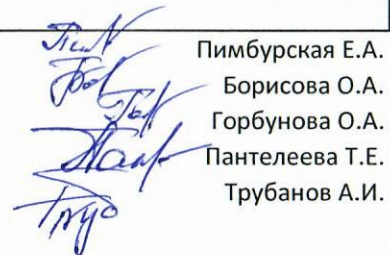 Пимбурская Е.А.
Борисова О.А.
Горбунова О.А.
Пантелеева Т.Е.
Трубанов А.И.